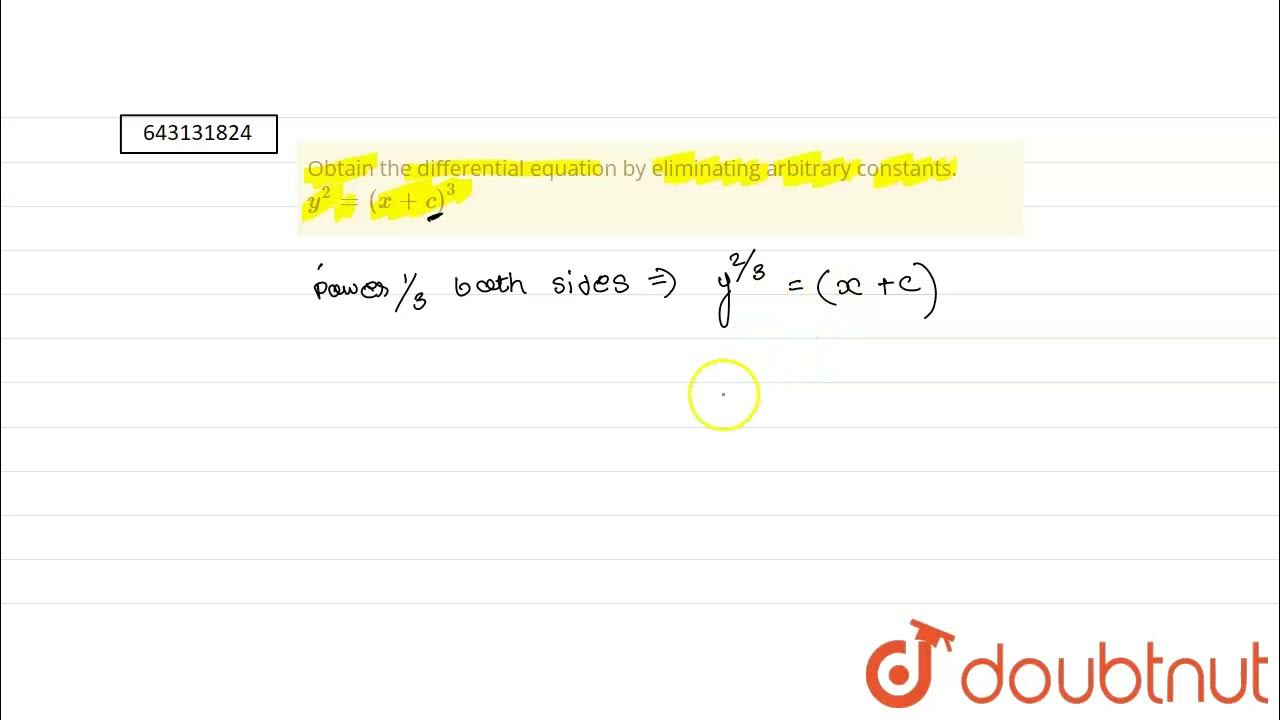 643131824
Obtain the differential equation by eliminating arbitrary constants.
y² = (x + c)³
power 1/3 both sides ⇒ y^2/3 = (x + c)
doubtnut